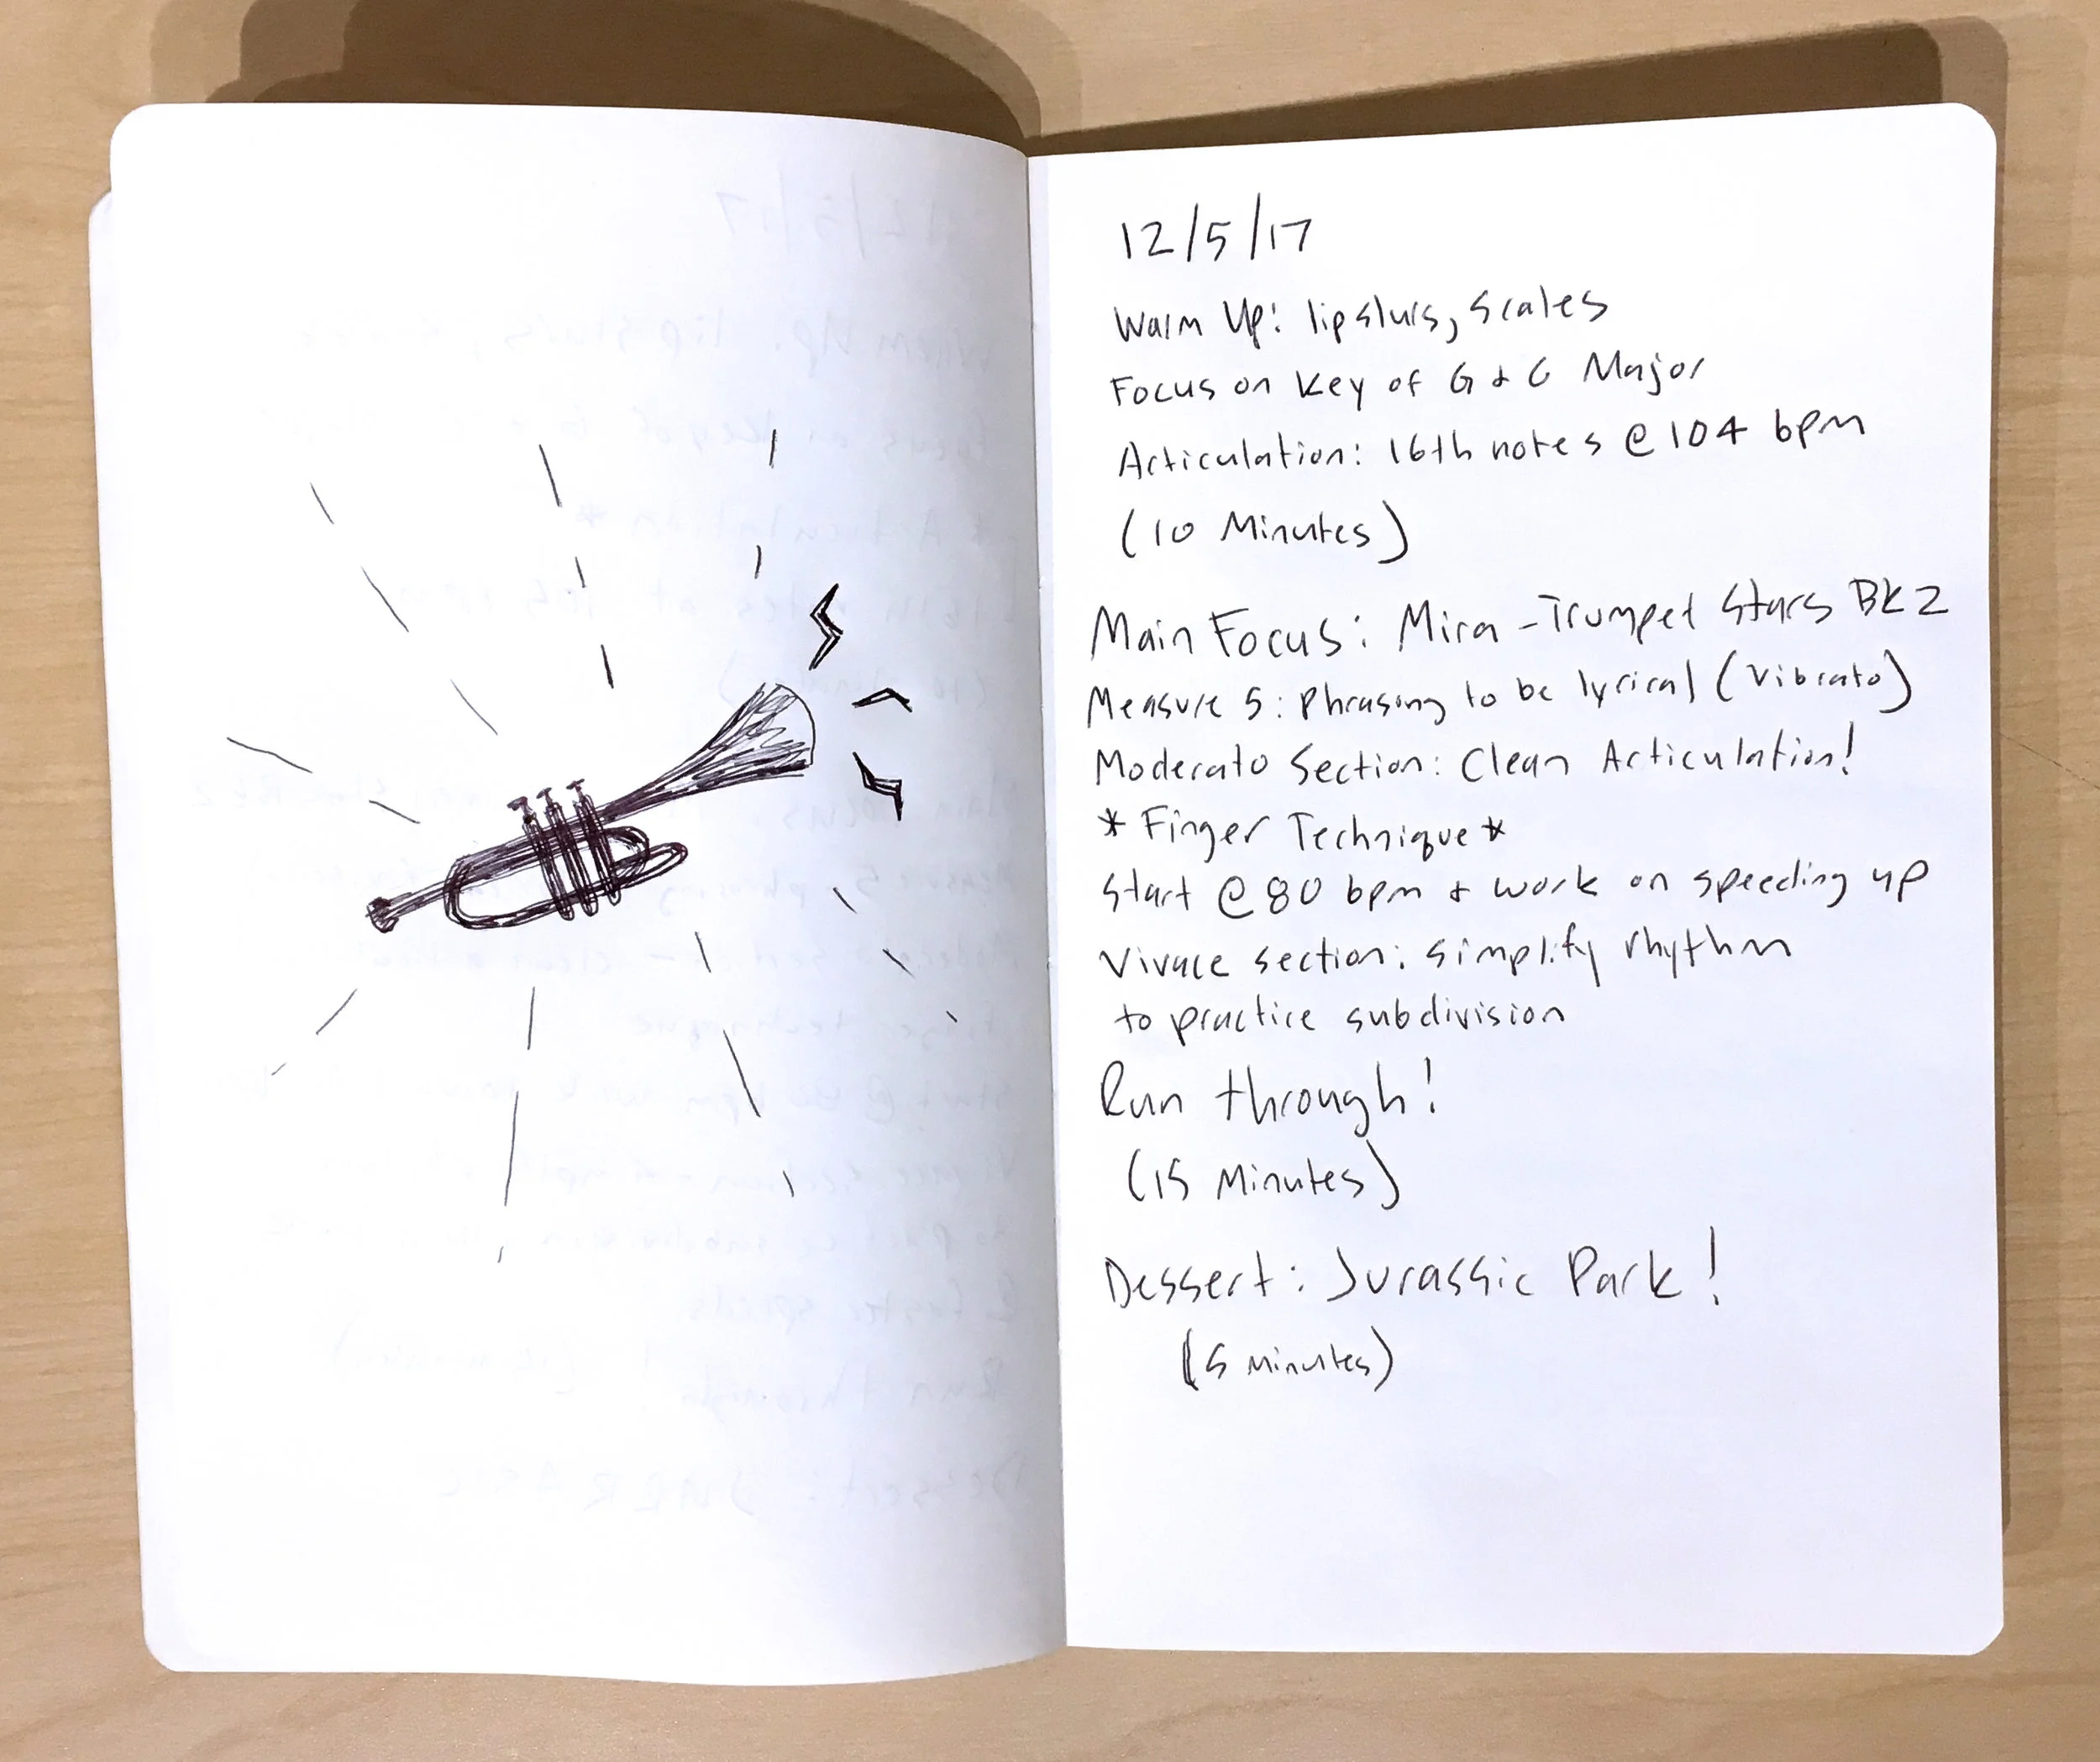 12/5/17
Warm Up: lip slurs, scales
Focus on Key of G & C Major
Articulation: 16th notes @ 104 bpm
(10 Minutes)
Main Focus: Mira - Trumpet Stars BK 2
Measure 5: Phrasing to be lyrical (Vibrato)
Moderato Section: Clean Articulation!
* Finger Technique *
Start @ 80 bpm & work on speeding up
Vivace section: simplify rhythm
to practice subdivision
Run through!
(15 Minutes)
Dessert: Jurassic Park!
(5 minutes)